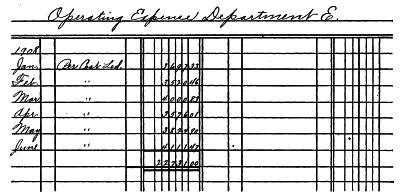 Operating Expense Department E.
1908
Jan. Per Cost Led. 3 6 9 7 3 3
Feb. " 3 5 2 0 4 6
Mar " 4 0 0 0 8 3
Apr. " 3 5 7 6 0 1
May " 3 8 2 4 9 0
June " 4 1 1 1 4 7
2 2 7 3 1 0 0